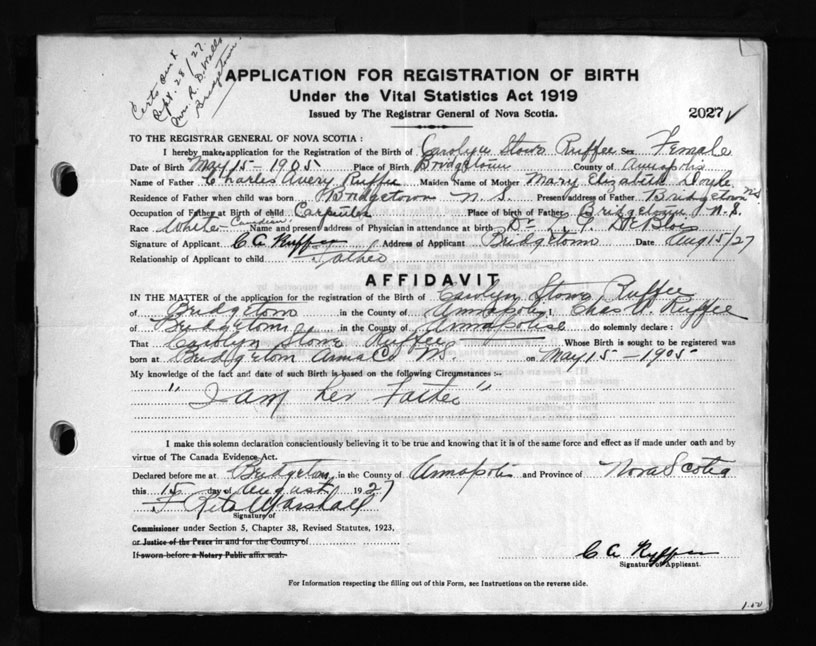 Certo Oin X
Sept. 28/27.
Mrs R. D. Walls
Bridgetown
APPLICATION FOR REGISTRATION OF BIRTH
Under the Vital Statistics Act 1919
Issued by The Registrar General of Nova Scotia.
2027
TO THE REGISTRAR GENERAL OF NOVA SCOTIA :
I hereby make application for the Registration of the Birth of Carolyn Stowe Ruffee Sex Female
Date of Birth May 15 - 1905 Place of Birth Bridgetown County of Annapolis
Name of Father Charles Avery Ruffee Maiden Name of Mother Mary Elizabeth Doyle
Residence of Father when child was born Bridgetown N. S. Present address of Father Bridgetown NS
Occupation of Father at Birth of child Carpenter Place of birth of Father Bridgetown N. S.
Race White Canadian Name and present address of Physician in attendance at birth Dr DeBlois
Signature of Applicant C A Ruffee Address of Applicant Bridgetown Date Aug 15/27
Relationship of Applicant to child Father
AFFIDAVIT
IN THE MATTER of the application for the registration of the Birth of Carolyn Stowe Ruffee
of Bridgetown in the County of Annapolis I, Chas A. Ruffee
of Bridgetown in the County of Annapolis do solemnly declare :
That Carolyn Stowe Ruffee Whose Birth is sought to be registered was
born at Bridgetown Anna Co. NS. on May 15 - 1905
My knowledge of the fact and date of such Birth is based on the following Circumstances :-
" I am her Father "
I make this solemn declaration conscientiously believing it to be true and knowing that it is of the same force and effect as if made under oath and by
virtue of The Canada Evidence Act.
Declared before me at Bridgetown in the County of Annapolis and Province of Nova Scotia
this 15 day of August 1927
F Rita Marshall
Signature of
Commissioner under Section 5, Chapter 38, Revised Statutes, 1923,
or Justice of the Peace in and for the County of
If sworn before a Notary Public affix seal.
C A Ruffee
Signature of Applicant.
For Information respecting the filling out of this Form, see Instructions on the reverse side.
1.50